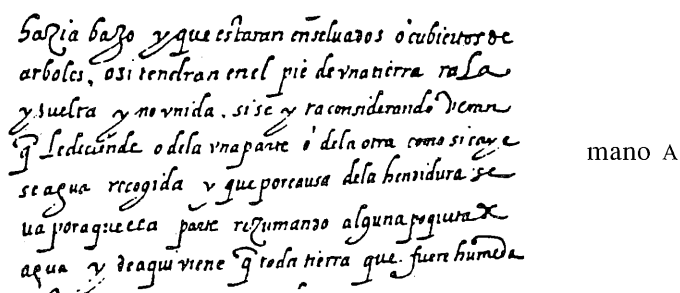 hazia bazo y que estaran enseluados o cubiertos de
arboles, o si tendran en el pie de vna tierra rala
y suelta y no vnida. si se yra considerando veran
q̃ le deciende o de la vna parte ó de la otra como si caye
se agua recogida y que por causa de la hendidura se
va por aquella parte rezumando alguna poquita de
agua y de aqui viene q̃ toda tierra que fuere humeda
mano A